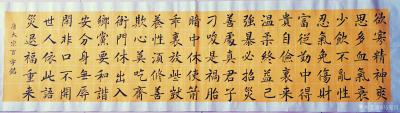 欲寡精神爽
思多血氣衰
少飲不亂性
忍氣免傷財
富從勤中得
貴自儉裏來
温柔終益己
強暴必招災
善處真君子
刁唆是禍胎
暗中休使箭
乖裏放些獃
養性須修善
欺心莫吃齋
衙門休出入
鄉黨要和諧
安分身無辱
閑非口不開
世人依此語
災退福重來
唐太宗百字銘